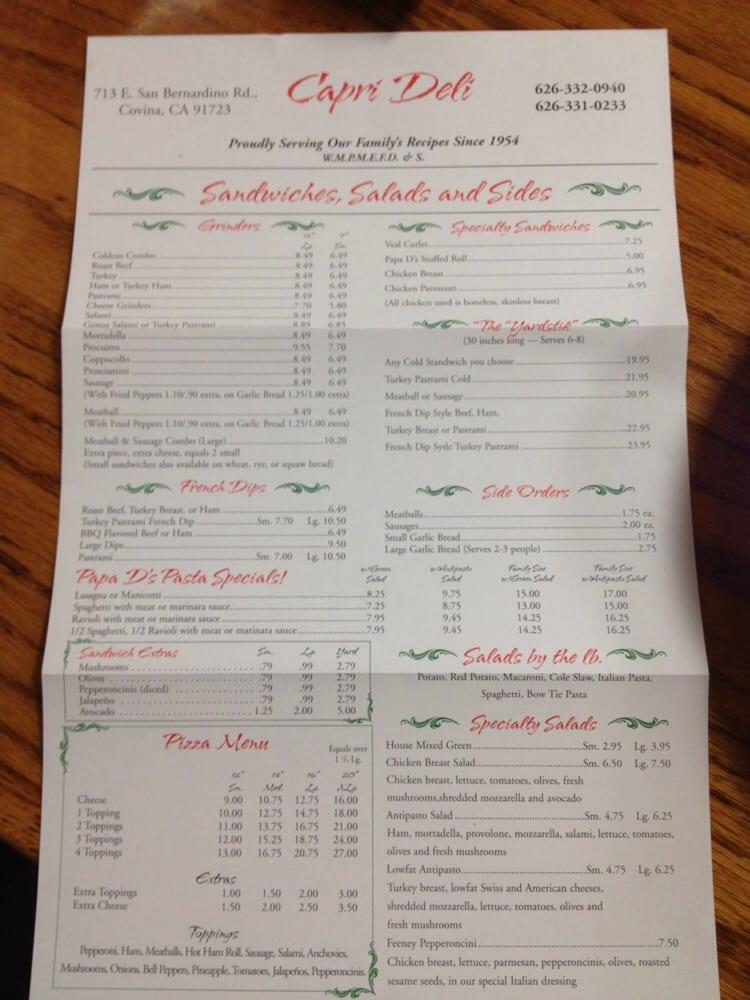 713 E. San Bernardino Rd.,
Covina, CA 91723
Capri Deli
626-332-0940
626-331-0233
Proudly Serving Our Family's Recipes Since 1954
W.M.P.M.E.F.D. & S.
Sandwiches, Salads and Sides
Grinders
12" 7"
Lg Sm.
Coldcut Combo 8.49 6.49
Roast Beef 8.49 6.49
Turkey 8.49 6.49
Ham or Turkey Ham 8.49 6.49
Pastrami 8.49 6.49
Cheese Grinders 7.70 5.80
Salami 8.49 6.49
Genoa Salami or Turkey Pastrami 8.89 6.85
Mortadella 8.49 6.49
Procuitto 9.55 7.70
Coppocollo 8.49 6.49
Prosciuttini 8.49 6.49
Sausage 8.49 6.49
(With Fried Peppers 1.10/.90 extra, on Garlic Bread 1.25/1.00 extra)
Meatball 8.49 6.49
(With Fried Peppers 1.10/.90 extra, on Garlic Bread 1.25/1.00 extra)
Meatball & Sausage Combo (Large) 10.20
Extra piece, extra cheese, equals 2 small
(Small sandwiches also available on wheat, rye, or squaw bread)
French Dips
Roast Beef, Turkey Breast, or Ham 6.49
Turkey Pastrami French Dip Sm. 7.70 Lg. 10.50
BBQ Flavored Beef or Ham 6.49
Large Dips 9.50
Pastrami Sm. 7.00 Lg. 10.50
Specialty Sandwiches
Veal Cutlet 7.25
Papa D's Stuffed Roll 5.00
Chicken Breast 6.95
Chicken Parmesan 6.95
(All chicken used is boneless, skinless breast)
"The "Yardstik"
(30 inches long — Serves 6-8)
Any Cold Standwich you choose 19.95
Turkey Pastrami Cold 21.95
Meatball or Sausage 20.95
French Dip Style Beef, Ham,
Turkey Breast or Pastrami 22.95
French Dip Sytle Turkey Pastrami 23.95
Side Orders
Meatballs 1.75 ea.
Sausages 2.00 ea.
Small Garlic Bread 1.75
Large Garlic Bread (Serves 2-3 people) 2.75
Papa D's Pasta Specials!
w/Green w/Antipasto Family Size Family Size
Salad Salad w/Green Salad w/Antipasto Salad
Lasagna or Manicotti 8.25 9.75 15.00 17.00
Spaghetti with meat or marinara sauce 7.25 8.75 13.00 15.00
Ravioli with meat or marinara sauce 7.95 9.45 14.25 16.25
1/2 Spaghetti, 1/2 Ravioli with meat or marinara sauce 7.95 9.45 14.25 16.25
Sandwich Extras Sm. Lg. Yard
Mushrooms .79 .99 2.79
Olives .79 .99 2.79
Pepperoncinis (diced) .79 .99 2.79
Jalapeño .79 .99 2.79
Avocado 1.25 2.00 5.00
Pizza Menu
Equals over
1 ½ Lg.
12" 14" 16" 20"
Sm. Med. Lg XLg
Cheese 9.00 10.75 12.75 16.00
1 Topping 10.00 12.75 14.75 18.00
2 Toppings 11.00 13.75 16.75 21.00
3 Toppings 12.00 15.25 18.75 24.00
4 Toppings 13.00 16.75 20.75 27.00
Extras
Extra Toppings 1.00 1.50 2.00 3.00
Extra Cheese 1.50 2.00 2.50 3.50
Toppings
Pepperoni, Ham, Meatballs, Hot Ham Roll, Sausage, Salami, Anchovies,
Mushrooms, Onions, Bell Peppers, Pineapple, Tomatoes, Jalapeños, Pepperoncinis.
Salads by the lb.
Potato, Red Potato, Macaroni, Cole Slaw, Italian Pasta,
Spaghetti, Bow Tie Pasta
Specialty Salads
House Mixed Green Sm. 2.95 Lg. 3.95
Chicken Breast Salad Sm. 6.50 Lg. 7.50
Chicken breast, lettuce, tomatoes, olives, fresh
mushrooms,shredded mozzarella and avocado
Antipasto Salad Sm. 4.75 Lg. 6.25
Ham, mortadella, provolone, mozzarella, salami, lettuce, tomatoes,
olives and fresh mushrooms
Lowfat Antipasto Sm. 4.75 Lg. 6.25
Turkey breast, lowfat Swiss and American cheeses,
shredded mozzarella, lettuce, tomatoes, olives and
fresh mushrooms
Feeney Pepperoncini 7.50
Chicken breast, lettuce, parmesan, pepperoncinis, olives, roasted
sesame seeds, in our special Italian dressing